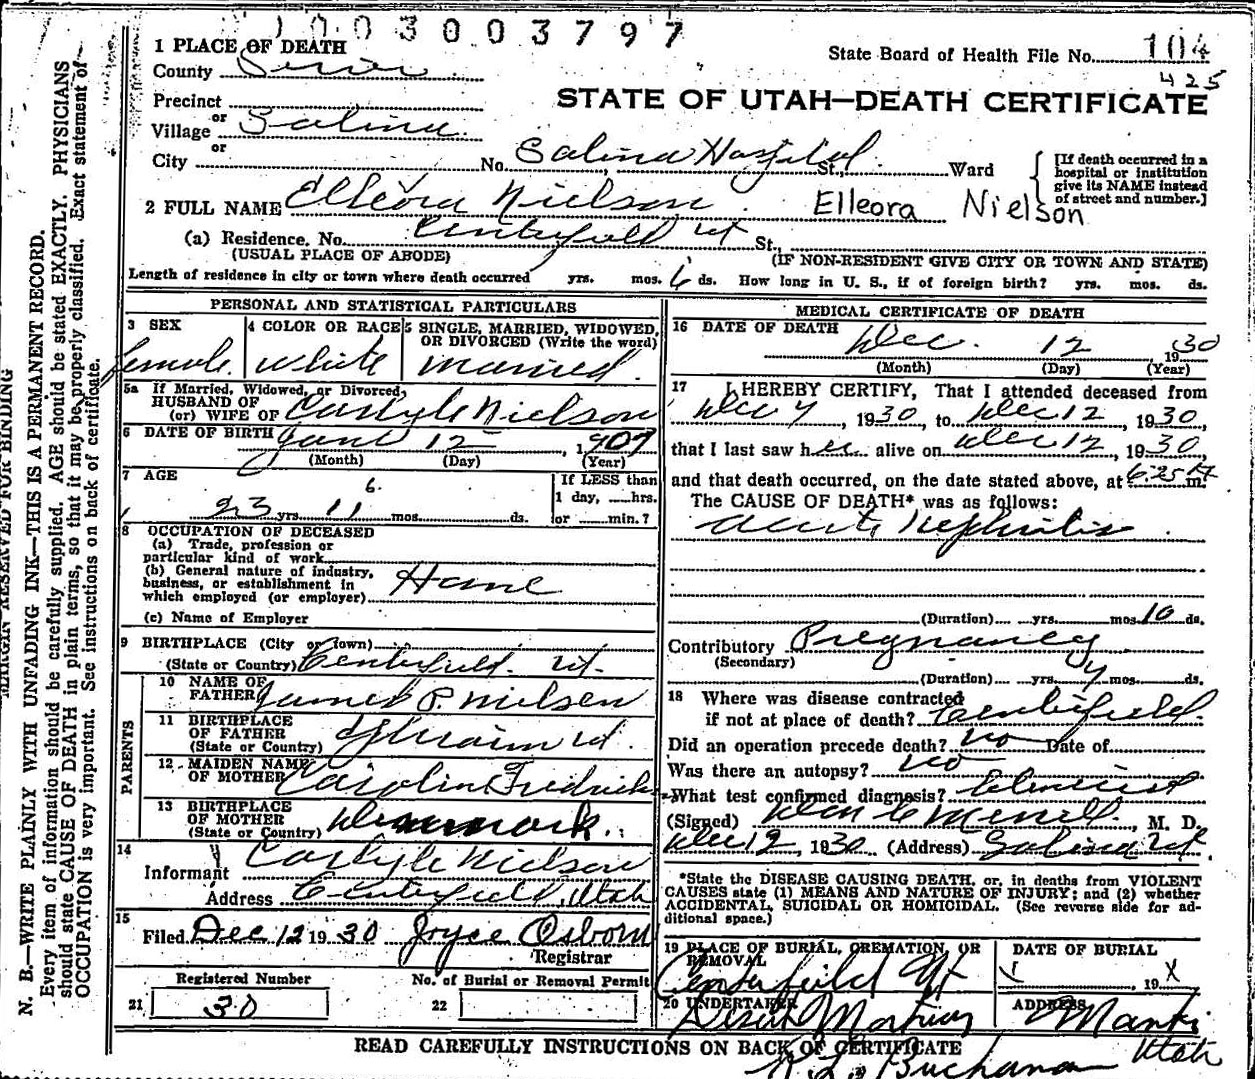 1003003797
1 PLACE OF DEATH
State Board of Health File No. 104
425
County Sevier
STATE OF UTAH—DEATH CERTIFICATE
Precinct
or
Village Salina
or
City No. Salina Hospital St., Ward
[If death occurred in a hospital or institution give its NAME instead of street and number.]
2 FULL NAME Elleora Nielson Elleora Nielson
(a) Residence. No. Centerfield Ut St.,
(USUAL PLACE OF ABODE) (IF NON-RESIDENT GIVE CITY OR TOWN AND STATE)
Length of residence in city or town where death occurred yrs. mos. 6 ds. How long in U. S., if of foreign birth? yrs. mos. ds.
PERSONAL AND STATISTICAL PARTICULARS
3 SEX
female
4 COLOR OR RACE
white
5 SINGLE, MARRIED, WIDOWED,
OR DIVORCED (Write the word)
married.
5a If Married, Widowed, or Divorced,
HUSBAND OF
(or) WIFE OF Carlyle Nielson
6 DATE OF BIRTH Jan 12 , 1907
(Month) (Day) (Year)
7 AGE
23 yrs. 11 mos. ds.
If LESS than
1 day, ......hrs.
or ......min.?
8 OCCUPATION OF DECEASED
(a) Trade, profession or
particular kind of work
(b) General nature of industry,
business, or establishment in
which employed (or employer) Home
(c) Name of Employer
9 BIRTHPLACE (City or Town)
(State or Country) Centerfield. Ut.
PARENTS
10 NAME OF
FATHER James P. Nielsen
11 BIRTHPLACE
OF FATHER
(State or Country) Ephraim Ut.
12 MAIDEN NAME
OF MOTHER Carolin Fredrick
13 BIRTHPLACE
OF MOTHER
(State or Country) Denmark.
14
Informant Carlyle Nielson
Address Centerfield, Utah
15
Filed Dec 12 1930 Joyce Osborn
Registrar
Registered Number No. of Burial or Removal Permit
21 30 22
MEDICAL CERTIFICATE OF DEATH
16 DATE OF DEATH
Dec. 12 , 1930
(Month) (Day) (Year)
17 I HEREBY CERTIFY, That I attended deceased from
Dec 7 , 1930, to Dec 12 , 1930,
that I last saw her alive on Dec 12 , 1930,
and that death occurred, on the date stated above, at 6:25 A m.
The CAUSE OF DEATH* was as follows:
Acute Nephritis
(Duration) yrs. mos. 10 ds.
Contributory Pregnancy
(Secondary)
(Duration) yrs. 7 mos. ds.
18 Where was disease contracted
if not at place of death? Centerfield.
Did an operation precede death? No Date of
Was there an autopsy? No
What test confirmed diagnosis? Clinical
(Signed) M. D.
Dec 12, 1930 (Address) Salina Ut.
*State the DISEASE CAUSING DEATH, or, in deaths from VIOLENT
CAUSES state (1) MEANS AND NATURE OF INJURY; and (2) whether
ACCIDENTAL, SUICIDAL OR HOMICIDAL. (See reverse side for ad-
ditional space.)
19 PLACE OF BURIAL, CREMATION, OR
REMOVAL
Centerfield Ut
DATE OF BURIAL
, 19 X
20 UNDERTAKER
Deseret Mortuary
ADDRESS
Manti
Utah
READ CAREFULLY INSTRUCTIONS ON BACK OF CERTIFICATE
Buchanan
MARGIN RESERVED FOR BINDING
N. B.—WRITE PLAINLY WITH UNFADING INK—THIS IS A PERMANENT RECORD.
Every item of information should be carefully supplied. AGE should be stated EXACTLY. PHYSICIANS
should state CAUSE OF DEATH in plain terms, so that it may be properly classified. Exact statement of
OCCUPATION is very important. See instructions on back of certificate.